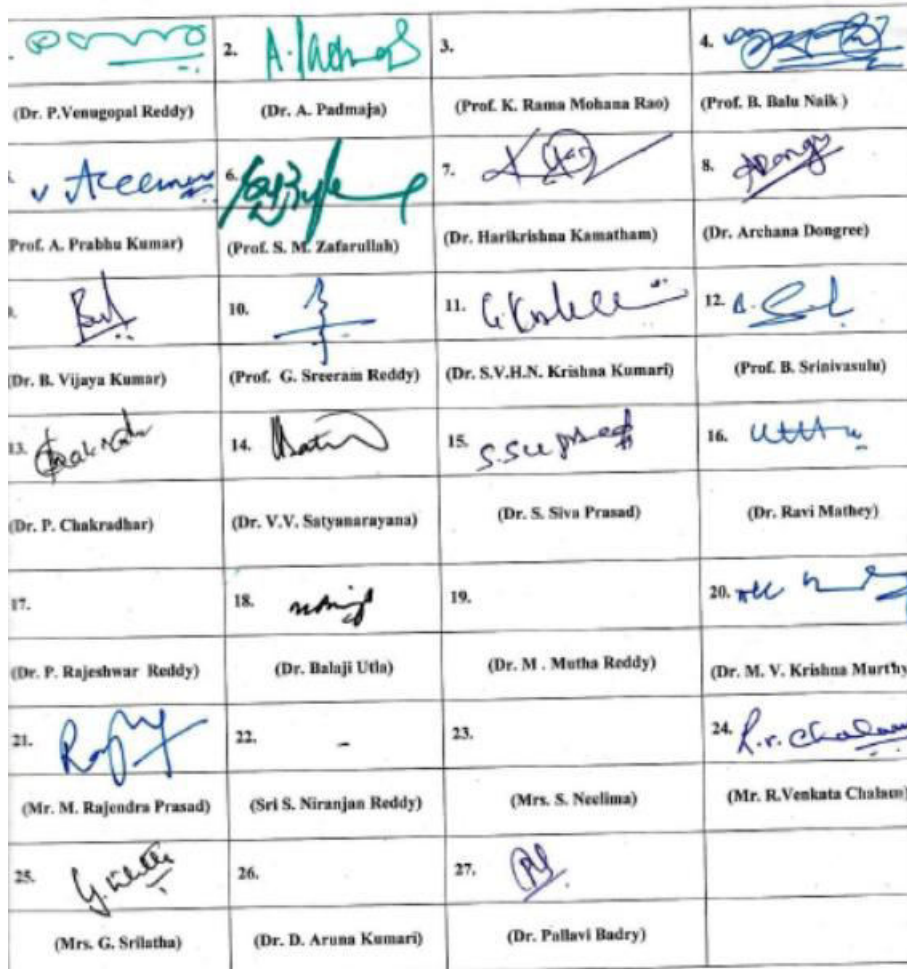 2. A. Padmaja 3. 4.
(Dr. P.Venugopal Reddy) (Dr. A. Padmaja) (Prof. K. Rama Mohana Rao) (Prof. B. Balu Naik )
6. 7. 8.
Prof. A. Prabhu Kumar) (Prof. S. M. Zafarullah) (Dr. Harikrishna Kamatham) (Dr. Archana Dongree)
10. 11. 12.
(Dr. B. Vijaya Kumar) (Prof. G. Sreeram Reddy) (Dr. S.V.H.N. Krishna Kumari) (Prof. B. Srinivasulu)
13. 14. 15. 16.
(Dr. P. Chakradhar) (Dr. V.V. Satyanarayana) (Dr. S. Siva Prasad) (Dr. Ravi Mathey)
17. 18. 19. 20.
(Dr. P. Rajeshwar Reddy) (Dr. Balaji Utla) (Dr. M . Mutha Reddy) (Dr. M. V. Krishna Murthy
21. 22. - 23. 24. R.v. Chalam
(Mr. M. Rajendra Prasad) (Sri S. Niranjan Reddy) (Mrs. S. Neelima) (Mr. R.Venkata Chalam)
25. 26. 27.
(Mrs. G. Srilatha) (Dr. D. Aruna Kumari) (Dr. Pallavi Badry)